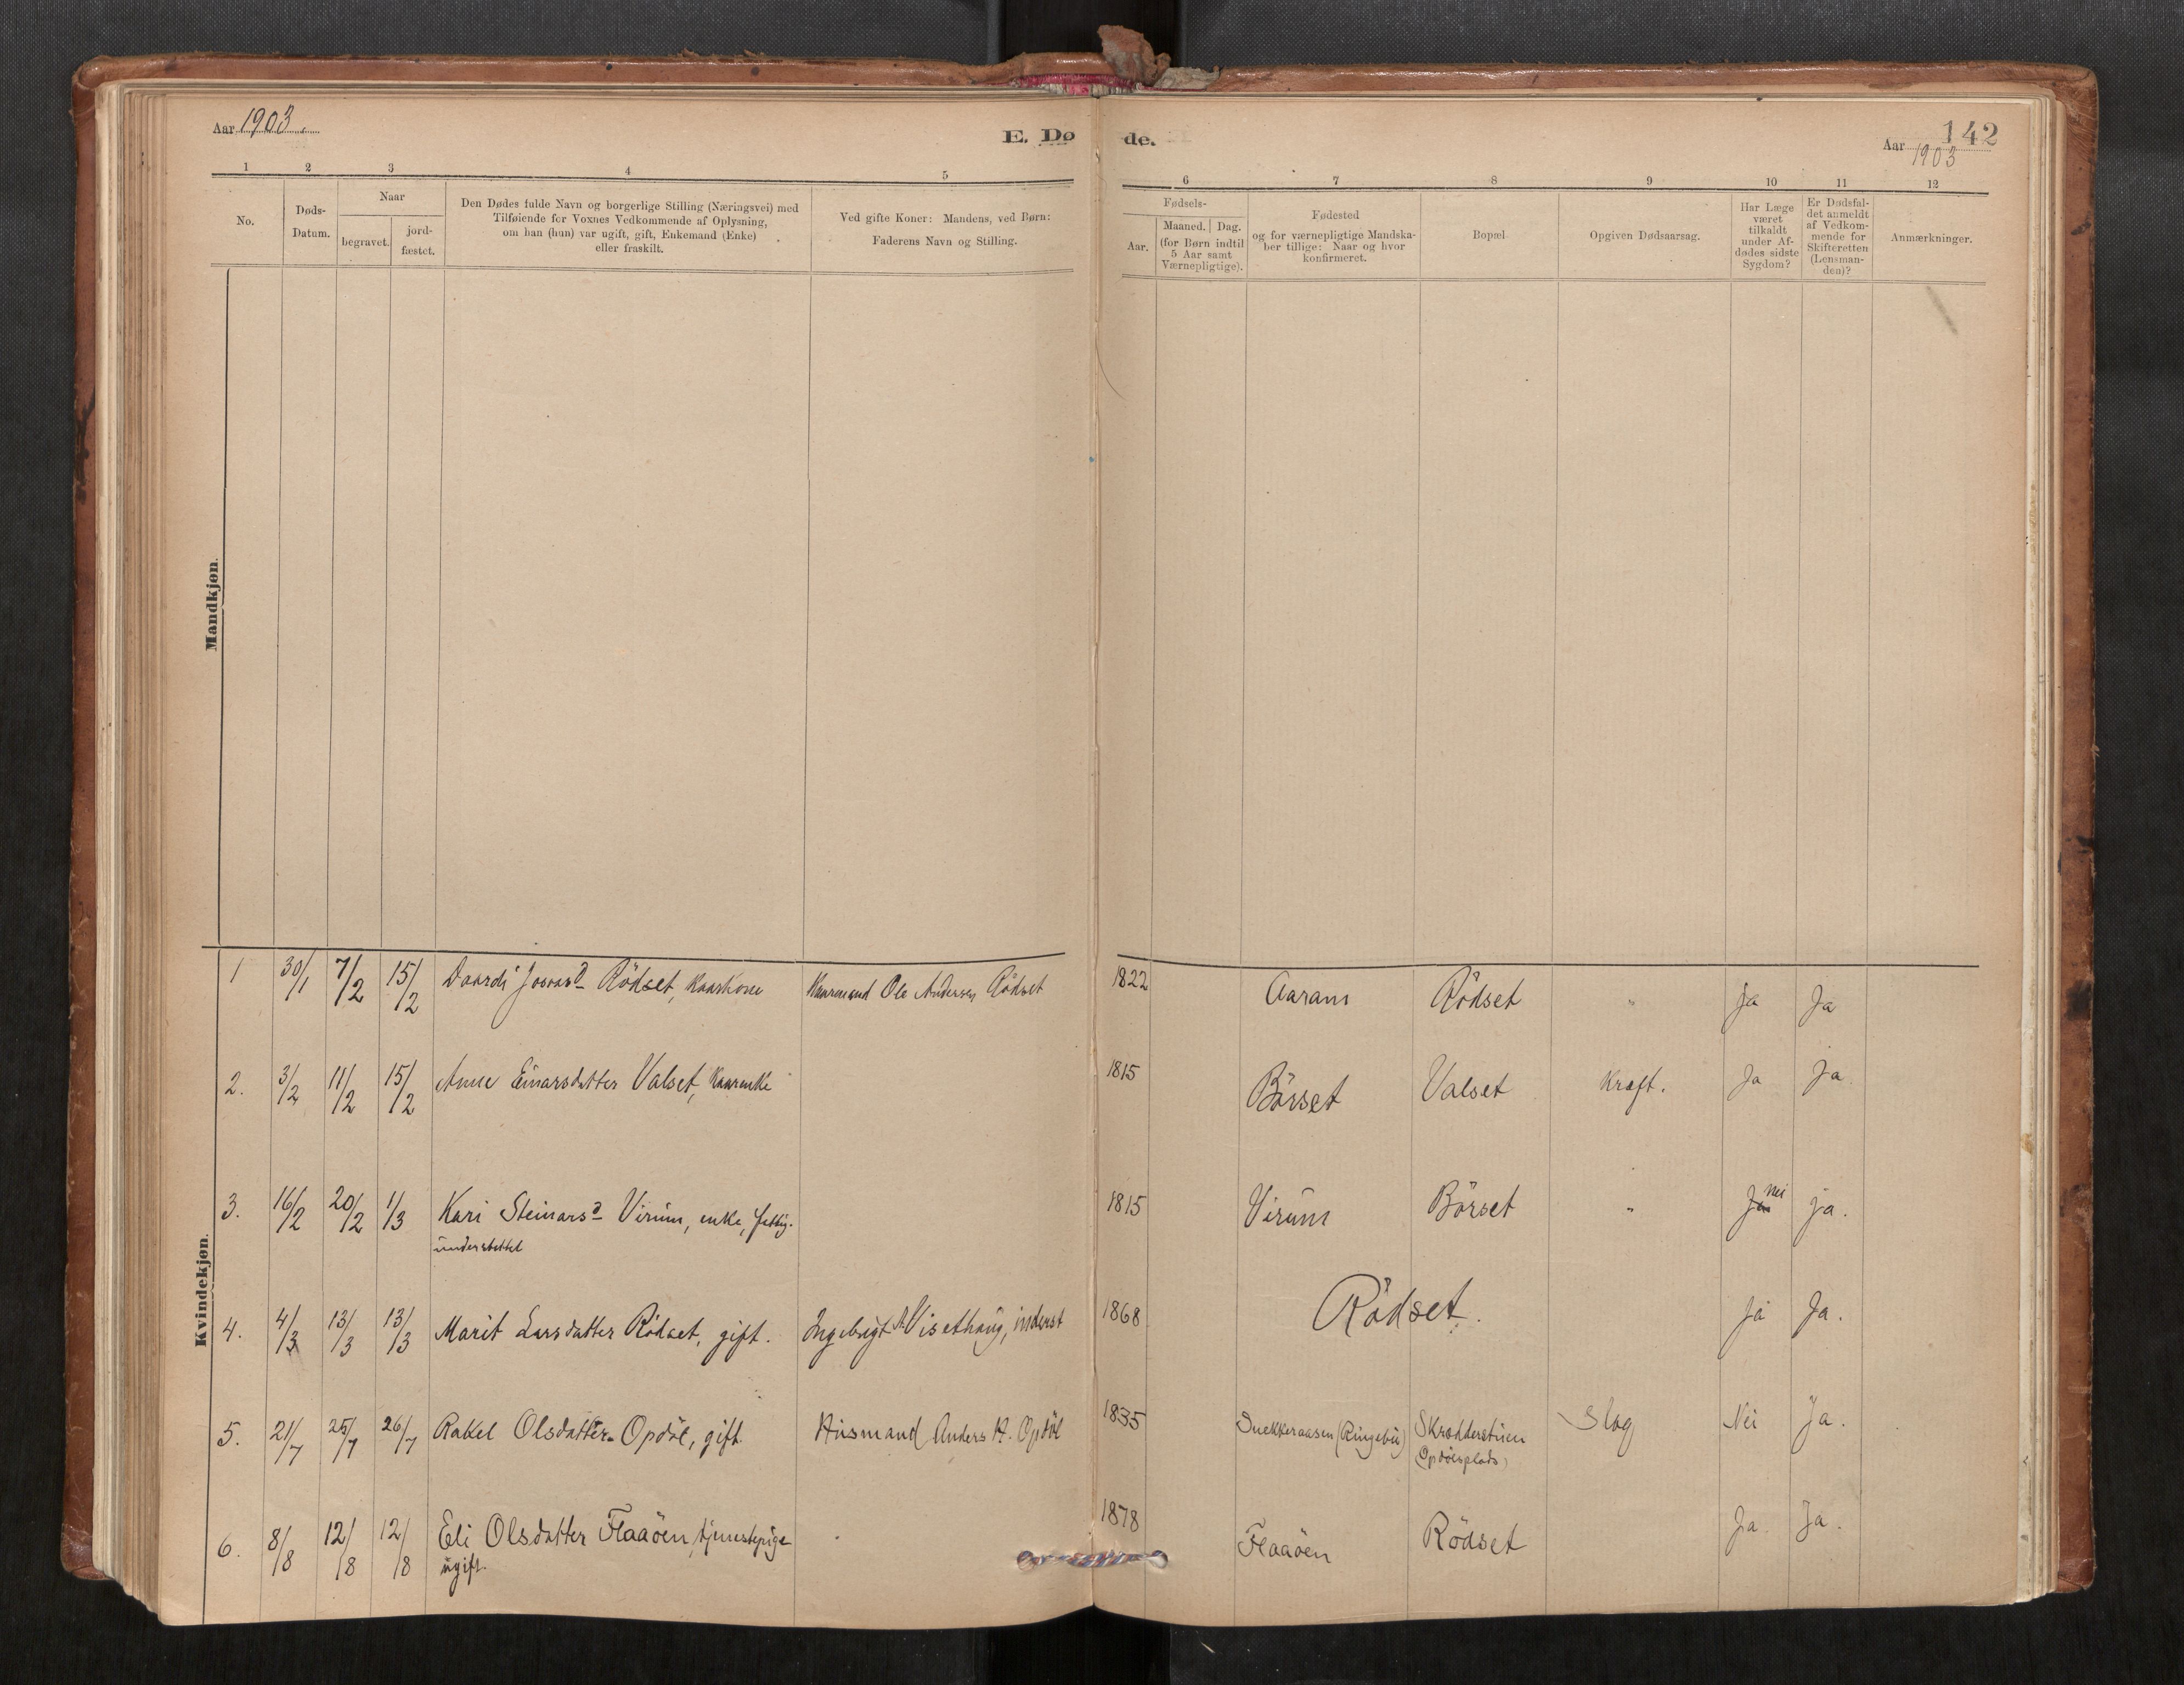 Aar 1903.
E. Dø
1 2 3 4 5
No.
Døds-
Datum.
Naar
begravet.
jord-
fæstet.
Den Dødes fulde Navn og borgerlige Stilling (Næringsvei) med
Tilføiende for Voxnes Vedkommende af Oplysning,
om han (hun) var ugift, gift, Enkemand (Enke)
eller fraskilt.
Ved gifte Koner: Mandens, ved Børn:
Faderens Navn og Stilling.
de.
142
Aar 1903
6 7 8 9 10 11 12
Fødsels-
Aar.
Maaned. Dag.
(for Børn indtil
5 Aar samt
Værnepligtige).
Fødested
og for værnepligtige Mandska-
ber tillige: Naar og hvor
konfirmeret.
Bopæl.
Opgiven Dødsaarsag.
Har Læge
været
tilkaldt
under Af-
dødes sidste
Sygdom?
Er Dødsfal-
det anmeldt
af Vedkom-
mende for
Skifteretten
(Lensman-
den)?
Anmærkninger.
Mandkjøn.
Kvindekjøn.
1 30/1 7/2 15/2 Rödset, Kaarkone Kaarmand Ole Andersen Rödset 1822 Aaram Rödset " Ja Ja
2. 3/2 11/2 15/2 Anne Einarsdatter Valset, Kaarenke 1815 Börset Valset Kræft. Ja Ja
3. 16/2 20/2 1/3 Kari Steinarsd Virum, enke, fattig-
understøttet
1815 Virum Börset " Ja Nei ja.
4. 4/3 13/3 13/3 Marit Larsdatter Rödset, gift. Ingebrigt Visethaug, inderst 1868 Rödset. Ja Ja.
5. 21/7 25/7 26/7 Rakel Olsdatter Opdöl, gift. Husmand Anders H. Opdöl 1835 Snekkeraasen (Ringebu) Skrædderstuen
(Opdölsplads)
Slag Nei Ja.
6. 8/8 12/8 12/8 Eli Olsdatter Flaaöen, tjenestepige
ugift.
1878 Flaaöen Rödset Ja. Ja.